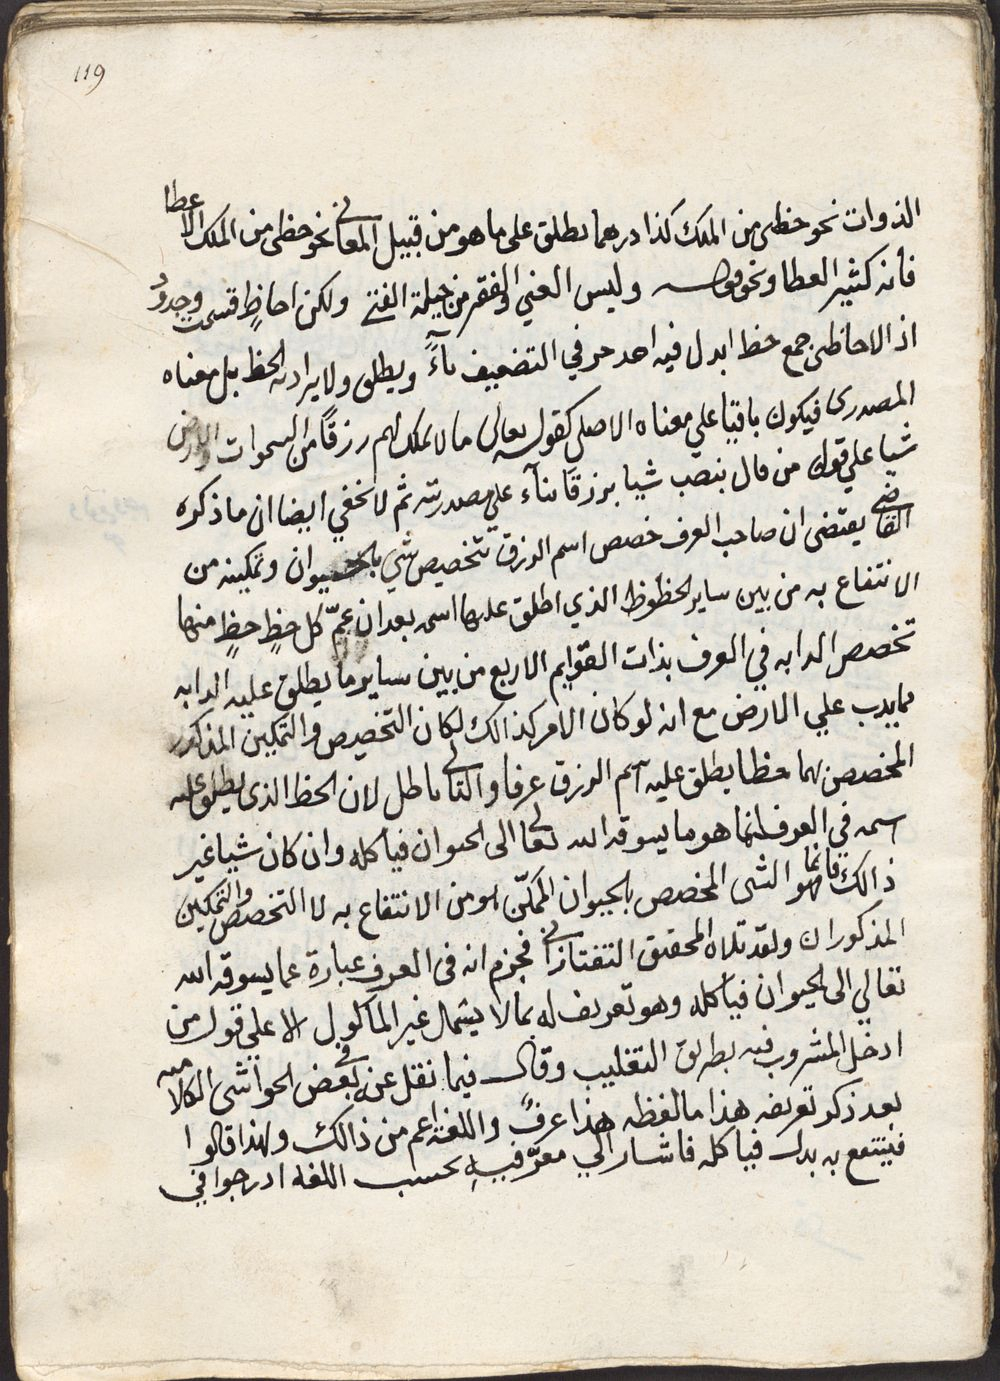 119
الذوات نحو حظى من الملك كذا درهما يطلق على ما هو من قبيل المعاني نحو حظى من الملك الاعطا
فأنه كثير العطا ونحو قوله وليس الغني والفقر من حيلة الفتى ولكن احاظٍ قسمت وجدودُ
اذ الاحاظى جمع حظ ابدل فيه احد حرفي التضعيف ياءً ويطلق ولا يراد به الحظ بل معناه
المصدرى فيكون باقيا علي معناه الاصلي كقوله تعالى ما لا يملك لهم رزقًا من السموات والارض
شيا علي قول من قال بنصب شيا برزقا بناء علي مصدريته ثم لا يخفي ايضا ان ما ذكره
القاضي يقتضى ان صاحب العرف خصص اسم الرزق بتخصيص شي بالحيوان وتمكينه من
الانتفاع به من بين ساير الحظوظ الذي اطلق عليها اسمه بعد ان عمّ كل حظٍ حظٍ منها
تخصص الدابه في العرف بذات القوايم الاربع من بين ساير ما يطلق عليه الدابه
مما يدب علي الارض مع انه لو كان الامر كذالك لكان التخصيص والتمكين المذكور
المخصص بهما حظا يطلق عليه اسم الرزق عرفا والتالي باطل لان الحظ الذى يطلق عليه
اسمه في العرف انما هو ما يسوقه الله تعالى الى الحيوان فياكله وان كان شيا غير
ذالك فانما هو الشى المخصص بالحيوان الممكّن هو من الانتفاع به لا التخصص والتمكين
المذكوران ولقد تلاه المحقق التفتازاني فجزم انه فى العرف عبارة عما يسوقه الله
تعالي الى الحيوان فياكله وهو تعريف له بما لا يشمل غير الماكول الا علي قول من
ادخل المشروب فيه بطريق التغليب وقال فيما نقل عنه في بعض الحواشى الكلاميه
بعد ذكر تعريفه هذا ما لفظه هذا عرفً واللغة اعم من ذالك ولهذا قالوا
فينتفع به بدل فياكله فاشار الي معرّفيه بحسب اللغه ادرجوا في